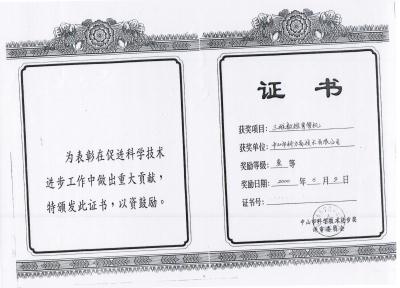 为表彰在促进科学技术
进步工作中做出重大贡献，
特颁发此证书，以资鼓励。
证书
获奖项目：
获奖单位：中山市 技术有限公司
奖励等级： 等
奖励日期：2000 年 6 月 日
证书号：
中山市科学技术进步奖
评审委员会